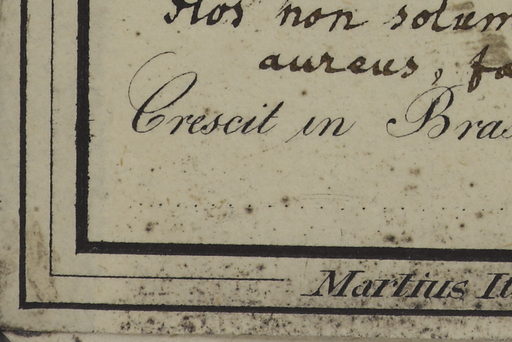 flos non solum
aureus, fa
Crescit in Bras
Martius It